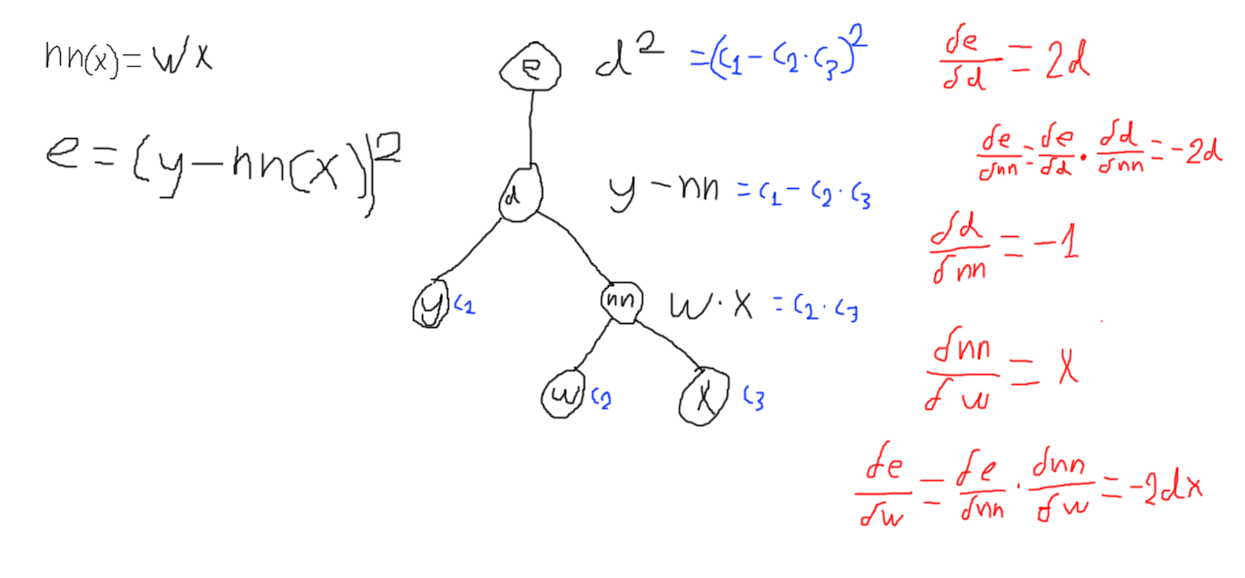 nn(x)=wx
e=(y-nn(x))²
e
d² =(c₁-c₂·c₃)²
d
y-nn =c₁-c₂·c₃
y c₁
nn
w·x =c₂·c₃
w c₂
x c₃
δe/δd = 2d
δe/δnn = δe/δd · δd/δnn = -2d
δd/δnn = -1
δnn/δw = x
δe/δw = δe/δnn · δnn/δw = -2dx